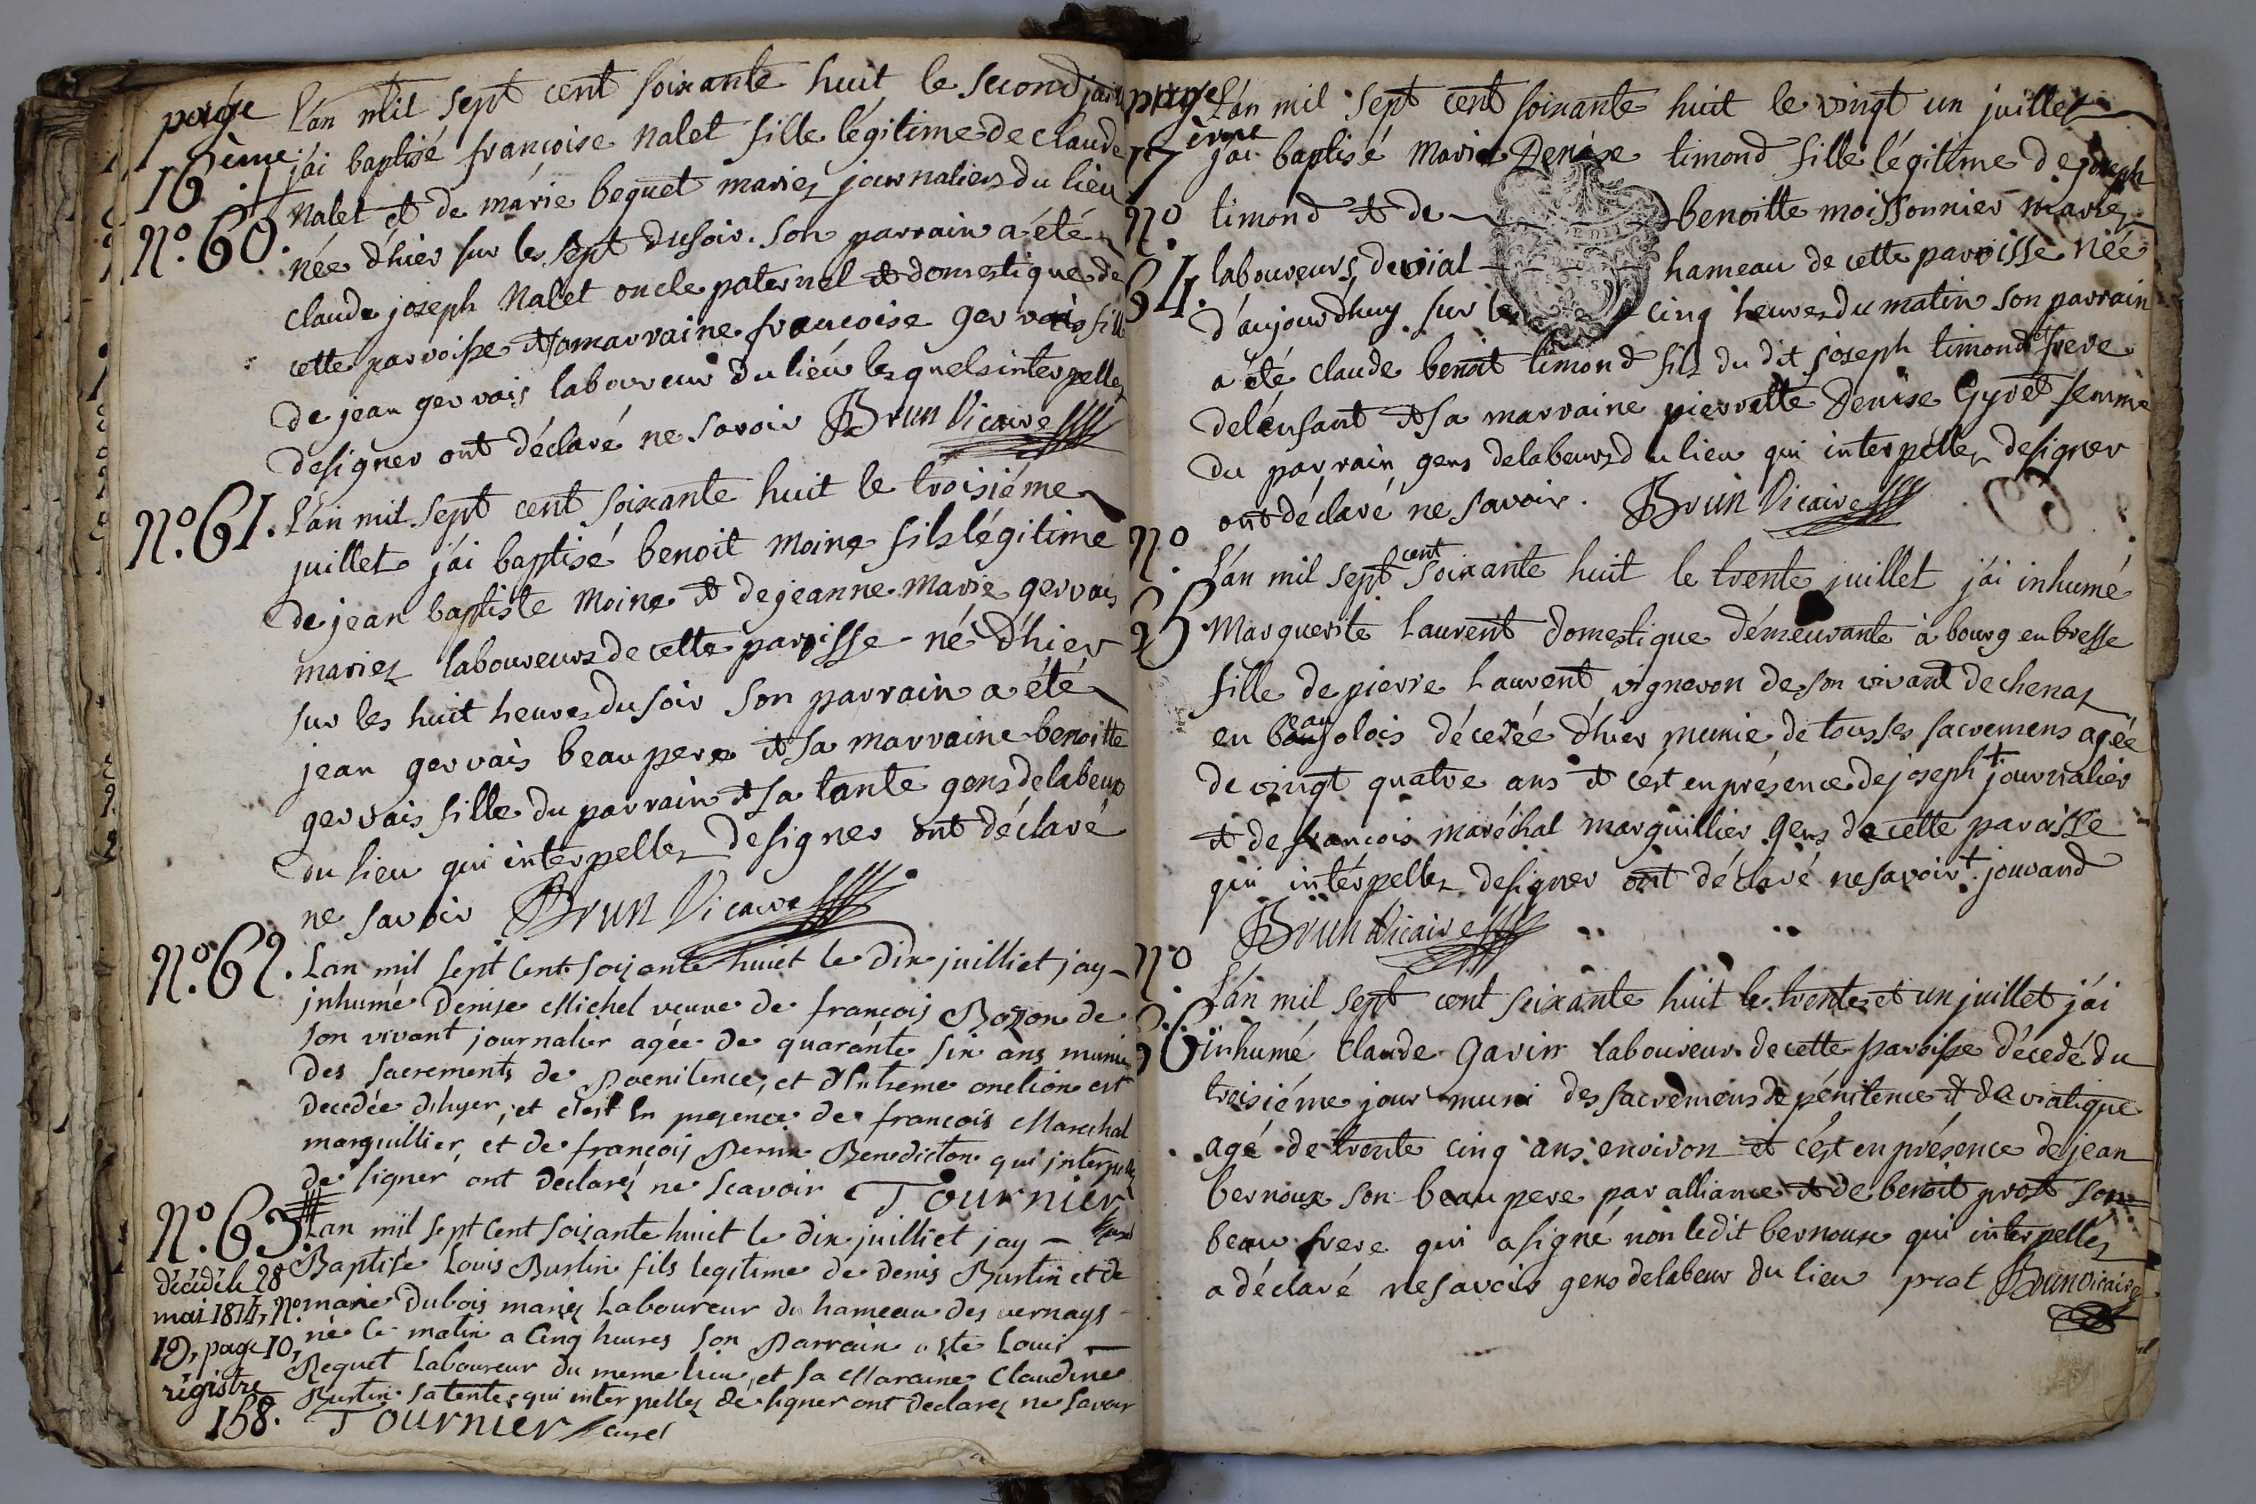 page
16ème.
N°. 60.
L'an mil sept cent soixante huit le second juillet
j'ai baptisé francoise nalet fille légitime de claude
nalet et de marie bequet mariez journaliers du lieu
née d'hier sur les sept du soir. son parrain a été
claude joseph nalet oncle paternel et domestique de
cette parroisse et sa marraine francoise gervais fille
de jean gervais laboureur du lieu lesquels interpellez
designer ont déclaré ne savoir Brun Vicaire
N°. 61.
L'an mil sept cent soixante huit le troisiéme
juillet j'ai baptisé benoit moine fils légitime
de jean baptiste moine et de jeanne marie gervais
mariez laboureurs de cette paroisse né d'hier
sur les huit heures du soir son parrain a été
jean gervais beau pere et sa marraine benoitte
gervais fille du parrain et sa tante gens de labeur
du lieu qui interpellez designer ont déclaré
ne savoir Brun Vicaire
N°. 62.
Lan mil sept cent soixante huict le dix juilliet jay
jnhumé denise Michel veuve de françois Bozon de
son vivant journalier agée de quarante six ans munie
des sacrements de poenitence, et d'Extreme onction est
decedée dhyer, et c'est En presence de françois Marechal
marguillier, et de françois perrin Benedicton qui jnterpellez
de signer ont declarez ne scavoir Tournier
curé
N°. 63.
Lan mil sept cent soixante huict le dix juilliet jay
Baptise Louis Burtin fils legitime de denis Burtin et de
marie Dubois mariez Laboureur du hameau des vernays
né ce matin a cinq heures son Parrain a este Louis
Requet Laboureur du meme lieu, et sa Maraine Claudine
Burtin sa tente, qui interpellez de signer ont declarez ne savoir
Tournier curé
décédé le 28
mai 1814, N°.
19, page 10,
régistre
158.
page
17 ème
N°.
64.
L'an mil sept cent soixante huit le vingt un juillet
j'ai baptisé Marie Denise timond fille légitime de joseph
timond et de benoitte moissonnier mariez
laboureurs de vial hameau de cette paroisse née
d'aujourdhuy sur les cinq heures du matin son parrain
a été claude benoit timond fils du dit joseph timond frere
de l'enfant et sa marraine pierrette Denise Gyvet femme
du parrain gens de labeurs du lieu qui interpellez designer
ont déclaré ne savoir. Brun Vicaire
N°.
65
L'an mil sept cent soixante huit le trente juillet j'ai inhumé
Marguerite Laurent domestique démeurante à bourg en bresse
fille de pierre Laurent vigneron de son vivant de chenaz
en beaujolois décedée d'hier munie de tous ses sacremens agée
de vingt quatre ans et c'est en présence de joseph + journalier
et de francois maréchal marguillier gens de cette paroisse
qui interpellez designer ont déclaré ne savoir + jouvand
Brun Vicaire
N°.
66
L'an mil sept cent soixante huit le trente et un juillet j'ai
inhumé Claude Gavin laboureur de cette paroisse décedé du
troisiéme jour muni des sacremens de pénitence et de viatique
agé de trente cinq ans environ et c'est en présence de jean
bernoux son beau pere par alliance et de benoit prost son
beau frere qui a signé non ledit bernoux qui interpellez
a déclaré ne savoir gens de labeur du lieu prost Brun Vicaire